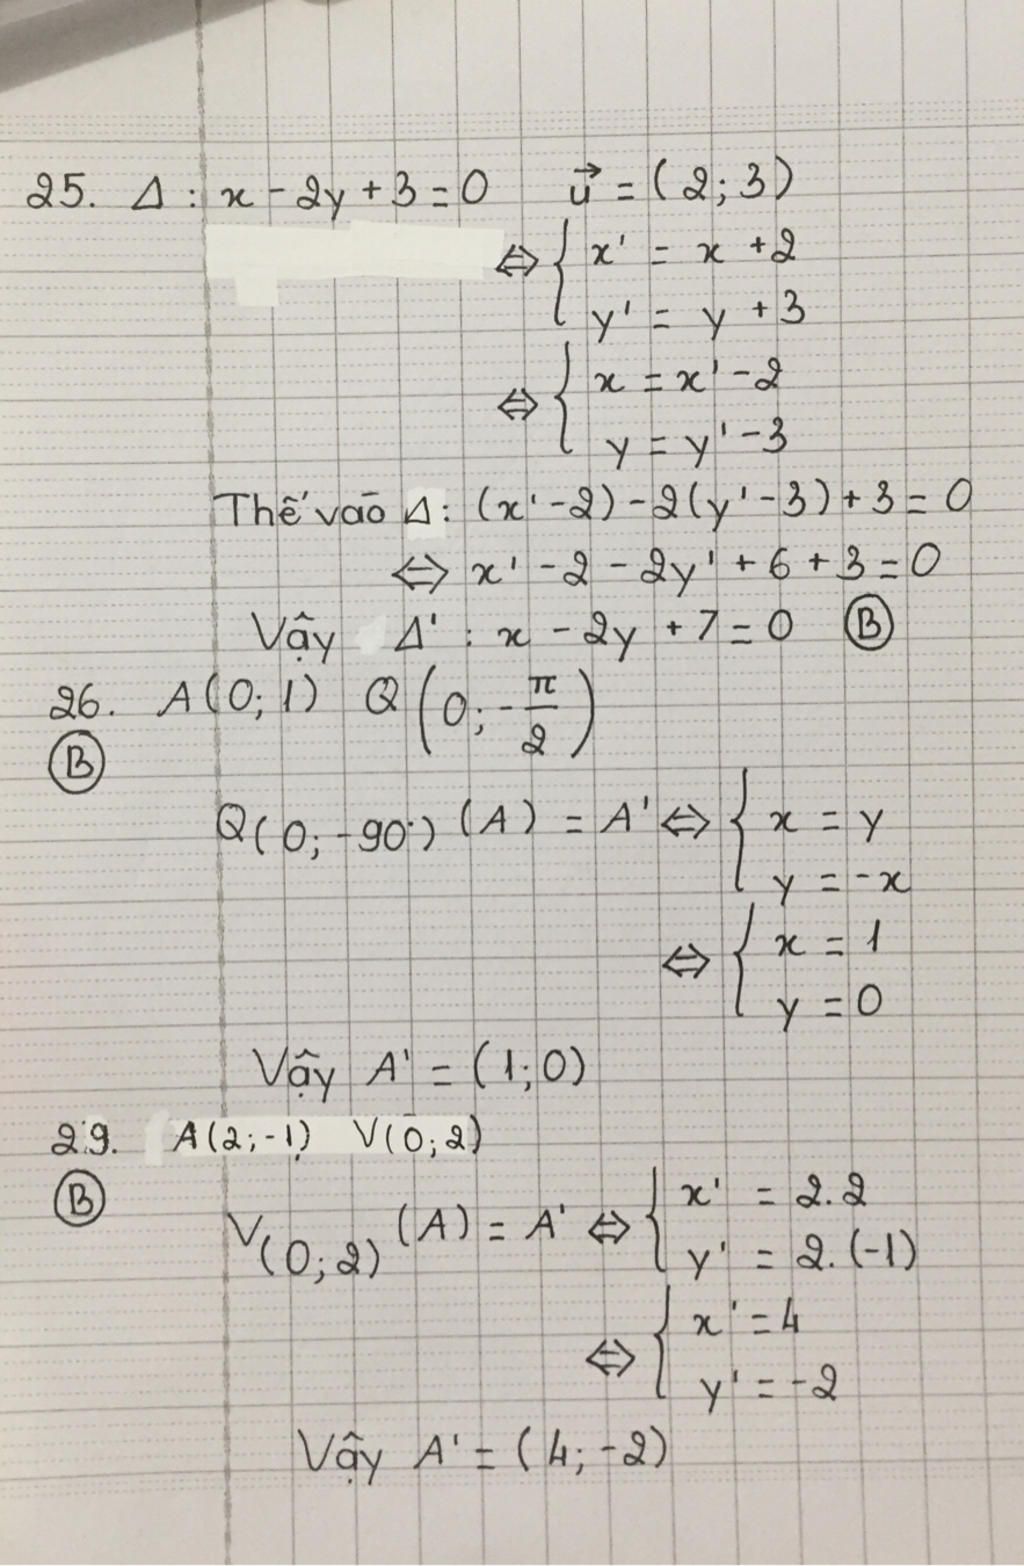 25. Δ : x - 2y + 3 = 0 u⃗ = (2; 3)
⇔ { x' = x + 2
y' = y + 3
⇔ { x = x' - 2
y = y' - 3
Thế vào Δ: (x' - 2) - 2(y' - 3) + 3 = 0
⇔ x' - 2 - 2y' + 6 + 3 = 0
Vậy Δ' : x - 2y + 7 = 0 Ⓑ
26. A(0; 1) Q(0; -π/2)
Ⓑ
Q(0; -90°) (A) = A' ⇔ { x = y
y = -x
⇔ { x = 1
y = 0
Vậy A' = (1; 0)
29. A(2; -1) V(0; 2)
Ⓑ
V(0; 2) (A) = A' ⇔ { x' = 2.2
y' = 2.(-1)
⇔ { x' = 4
y' = -2
Vậy A' = (4; -2)